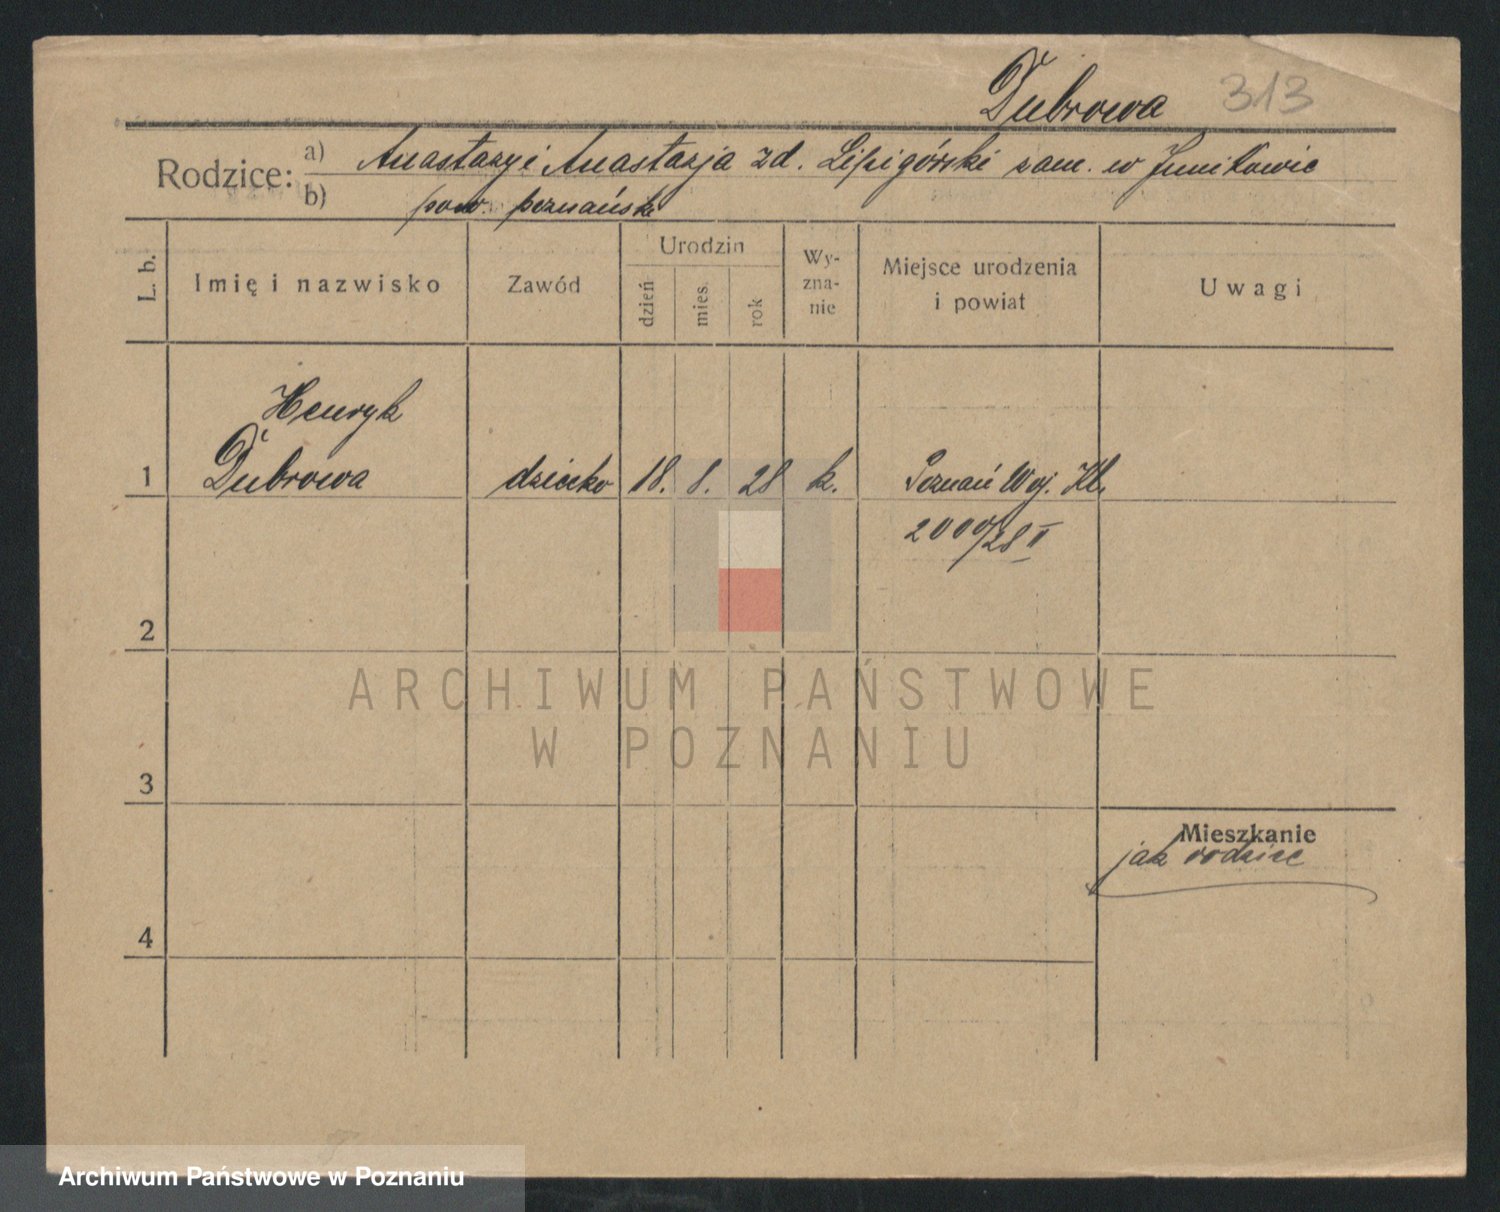 Dubrowa 313
Rodzice: a) Anastazy i Anastazja zd. Lipigórski zam. w Junikowie
b) pow. poznański
L. b.
Imię i nazwisko
Zawód
Urodzin
dzień
mies.
rok
Wy-
zna-
nie
Miejsce urodzenia
i powiat
Uwagi
Henryk
1 Dubrowa dziecko 18. 8. 28 k. Poznań Woj. Kl.
2000/28 II
2
ARCHIWUM PAŃSTWOWE
W POZNANIU
3
Mieszkanie
jak rodzice
4
Archiwum Państwowe w Poznaniu